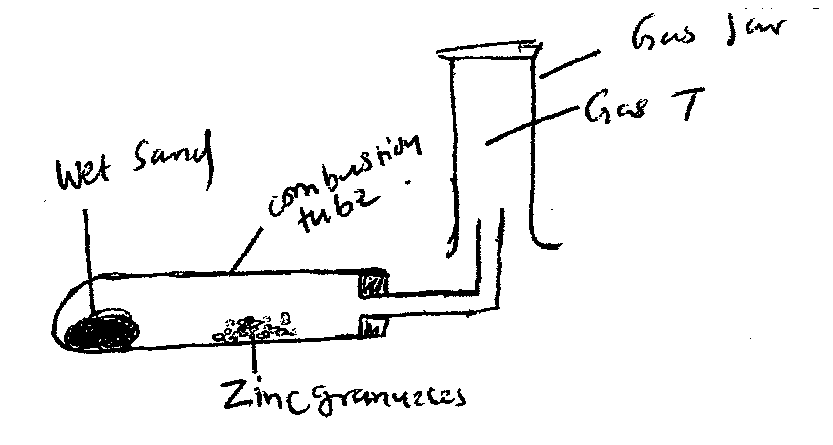 Gas Jar
Gas T
Wet Sand
combustion
tube
Zinc granules